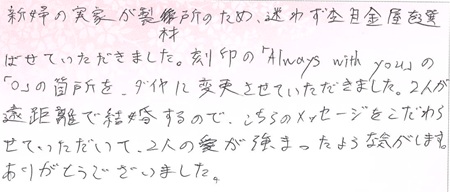 新婦の実家が製材所のため、迷わず杢目金屋を選
ばせていただきました。刻印の「Always with you」の
「o」の箇所を、ダイヤに変更させていただきました。2人が
遠距離で結婚するので、こちらのメッセージをこだわら
せていただいて、2人の愛が強まったような気がします。
ありがとうございました。